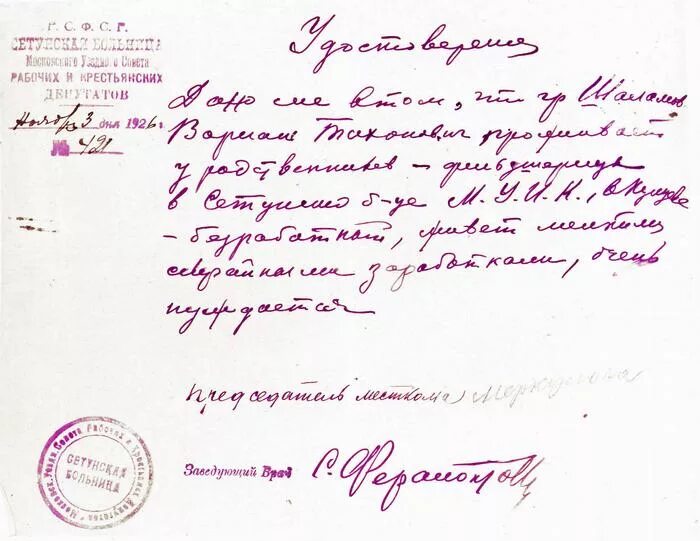 Р.С.Ф.С.Р.
СЕТУНСКАЯ БОЛЬНИЦА
Московского Уездн. о Совета
РАБОЧИХ И КРЕСТЬЯНСКИХ
ДЕПУТАТОВ
Ноября 3 дня 1926 г.
№ 491
Удостоверение
Дано сие в том, что гр Шаламов
Варлам Тихонович проживает
у родственников – фельдшерицы
в Сетунской б-це М.У.И.К.,
– безработный, живет мелкими
случайными заработками, очень
нуждается
Председатель месткома
Заведующий Врач
СЕТУНСКАЯ
БОЛЬНИЦА